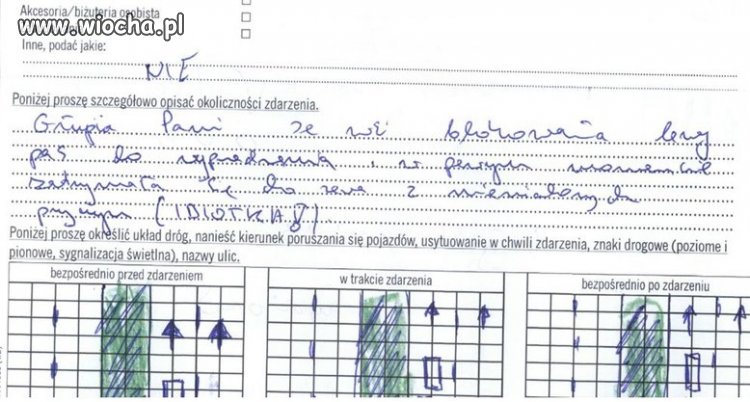 Akcesoria/biżuteria osobista
www.wiocha.pl
Inne, podać jakie:
NIE
Poniżej proszę szczegółowo opisać okoliczności zdarzenia.
Głupia Pani ze wsi blokowała lewy
pas do wyprzedzania i w pewnym momencie
zatrzymała się do zera z niewiadomych
przyczyn (IDIOTKA!)
Poniżej proszę określić układ dróg, nanieść kierunek poruszania się pojazdów, usytuowanie w chwili zdarzenia, znaki drogowe (poziome i
pionowe, sygnalizacja świetlna), nazwy ulic.
bezpośrednio przed zdarzeniem
w trakcie zdarzenia
bezpośrednio po zdarzeniu